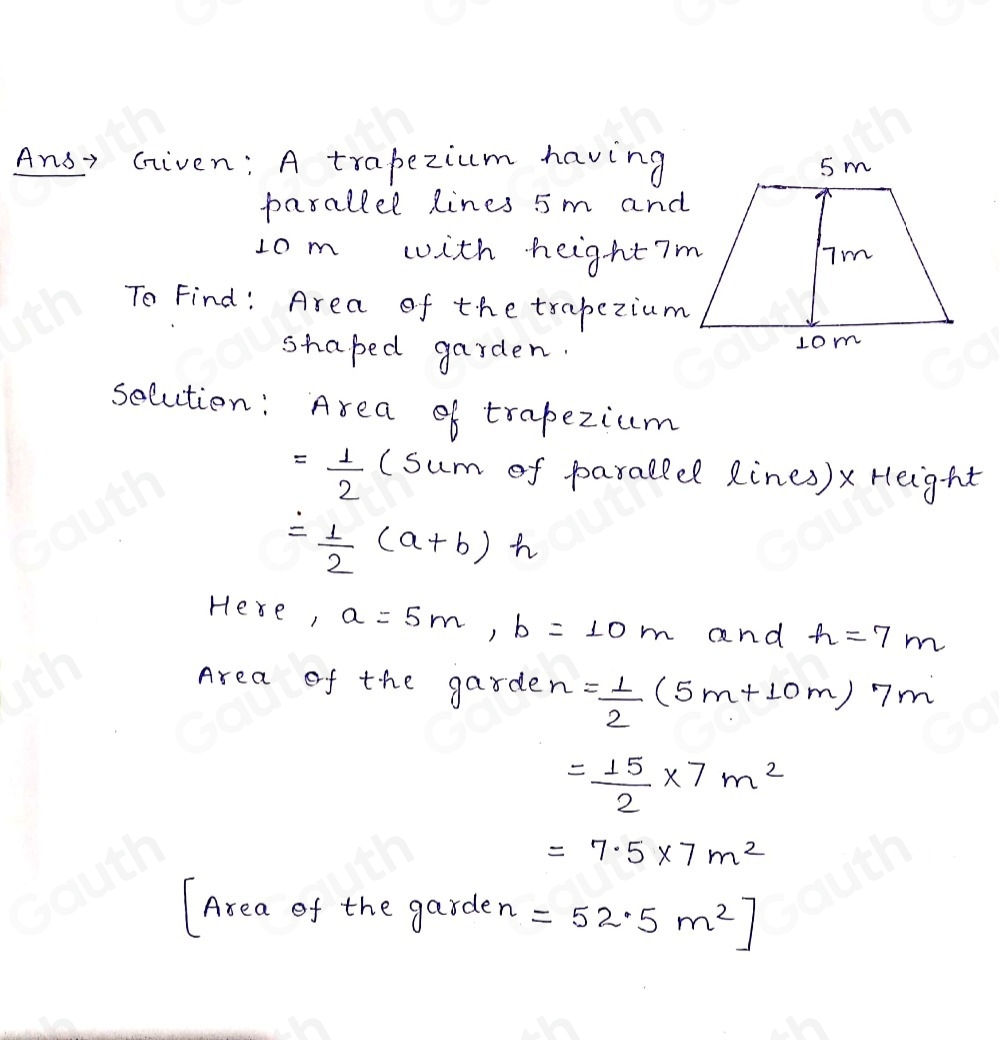 Ans → Given: A trapezium having
5 m
parallel lines 5 m and
10 m with height 7m
7m
To Find: Area of the trapezium
10 m
shaped garden.
Solution: Area of trapezium
= 1/2 (Sum of parallel lines) x Height
= 1/2 (a+b) h
Here, a = 5 m, b = 10 m and h = 7 m
Area of the garden = 1/2 (5m+10m) 7m
= 15/2 x 7 m²
= 7.5 x 7 m²
[Area of the garden = 52.5 m²]